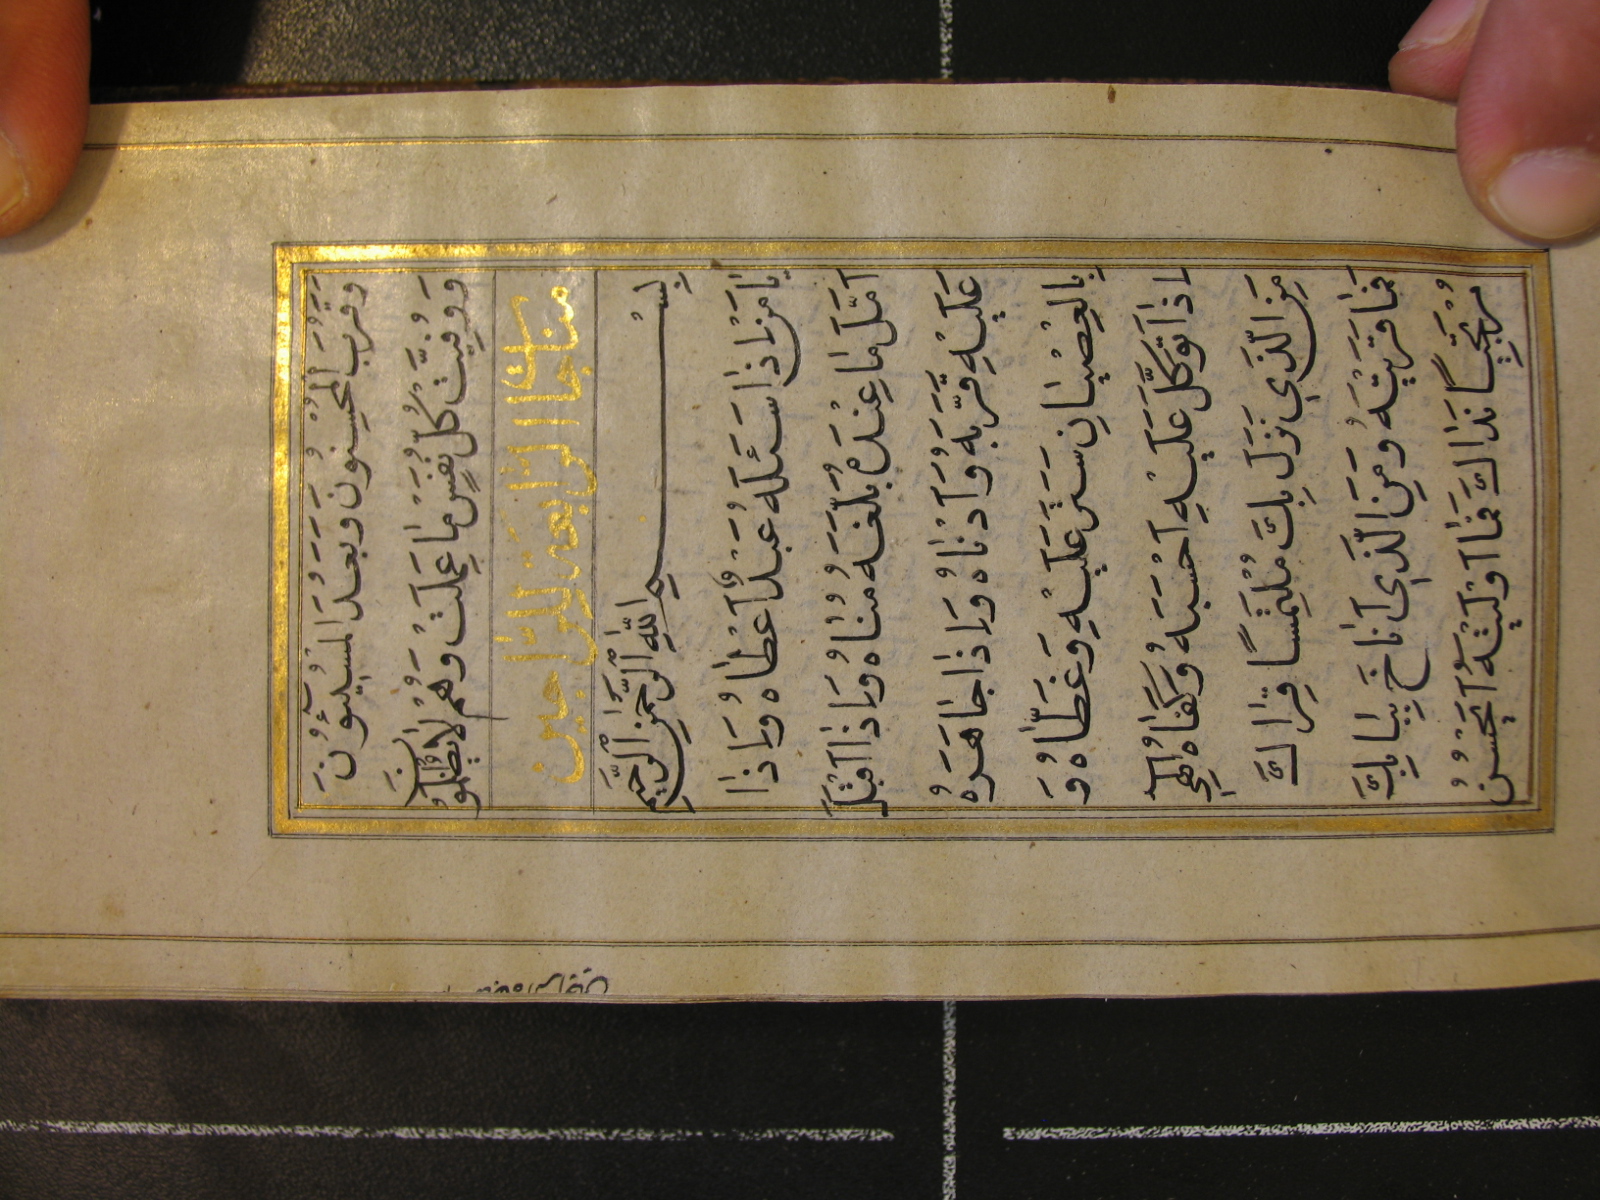 وَقَرُبَ الْمُحْسِنُونَ وَبَعُدَ الْمُسِيؤُنَ
وَوُفِّيَتْ كُلُّ نَفْسٍ مَا عَمِلَتْ وَهُمْ لَا يُظْلَمُونَ
مناجات الرابعة للراجين
بِسْمِ اللّٰهِ الرَّحْمٰنِ الرَّحِيمِ
يَا مَنْ اِذَا سَئَلَهُ عَبْدٌ اَعْطَاهُ وَاِذَا
اَمَّلَ مَا عِنْدَهُ بَلَّغَهُ مُنَاهُ وَاِذَا اَقْبَلَ
عَلَيْهِ قَرَّبَهُ وَاَدْنَاهُ وَاِذَا جَاهَرَهُ
بِالْعِصْيَانِ سَتَرَ عَلَيْهِ وَغَطَّاهُ وَ
اِذَا تَوَكَّلَ عَلَيْهِ اَحْسَبَهُ وَكَفَاهُ اِلٰهِي
مَنِ الَّذِي نَزَلَ بِكَ مُلْتَمِسًا قِرَاكَ
فَمَا قَرَيْتَهُ وَمَنِ الَّذِي اَنَاخَ بِبَابِكَ
مُرْتَجِيًا نَدَاكَ فَمَا اَوْلَيْتَهُ اَيَحْسُنُ